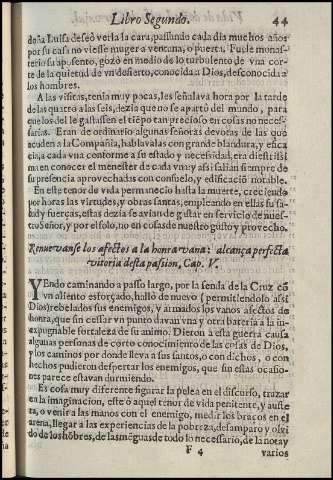 Libro Segundo. 44
doña Luisa deseò verla la cara, passando cada dia muchos años
por su casa no viesse muger a ventana, o puerta. Fue le monas-
terio su aposento, gozò en medio de lo turbulento de vna cor-
te de la quietud de vn desierto, conocida a Dios, desconocida a
los hombres.
A las visitas, tenia muy pocas, les señalava hora por la tarde
de las quatro a las seis, dezia que no se apartò del mundo, para
que los del le gastassen el tiẽpo tan precioso en cosas no neces-
sarias. Eran de ordinario algunas señoras devotas de las que
acuden a la Compañia, hablavalas con grande blandura, y efica
cia, a cada vna conforme a su estado y necessidad, era diestissi
ma en conocer el menester de cada vna y assi salian siempre de
su presencia aprovechadas con consuelo, y edificaciõ notable.
En este tenor de vida permanecio hasta la muerte, creciendo
por horas las virtudes, y obras santas, empleando en ellas su sa-
lud y fuerças, estas dezia se avian de gastar en servicio de nues-
tro señor, y por el solo, no en cosas de nuestro gusto y provecho.
Renuevanse los afectos a la honra vana: alcança perfecta
vitoria desta passion, Cap. V.
YEndo caminando a passo largo, por la senda de la Cruz cõ
vn aliento esforçado, hallò de nuevo (permitiendolo assi
Dios) rebelados sus enemigos, y armados los vanos afectos de
honra, que sin cessar vn punto davan vna y otra bateria a la in-
expugnable fortaleza de su animo. Dieron a esta guerra causa
algunas personas de corto conocimiento de las cosas de Dios,
y los caminos por donde lleva a sus santos, o con dichos, o con
hechos pudieron despertar los enemigos, que sin essas ocasio-
nes parece estavan durmiendo.
Es cosa muy diferente figurar la pelea en el discurso, trazar
en la imaginacion, este ò aquel tenor de vida penitente, y auste
ra, o venir a las manos con el enemigo, medir los braços en el
arena, llegar a las experiencias de la pobreza, desamparo y olvi
do de los hõbres, de las mẽguas de todo lo necessario, de la nota y
F 4 varios